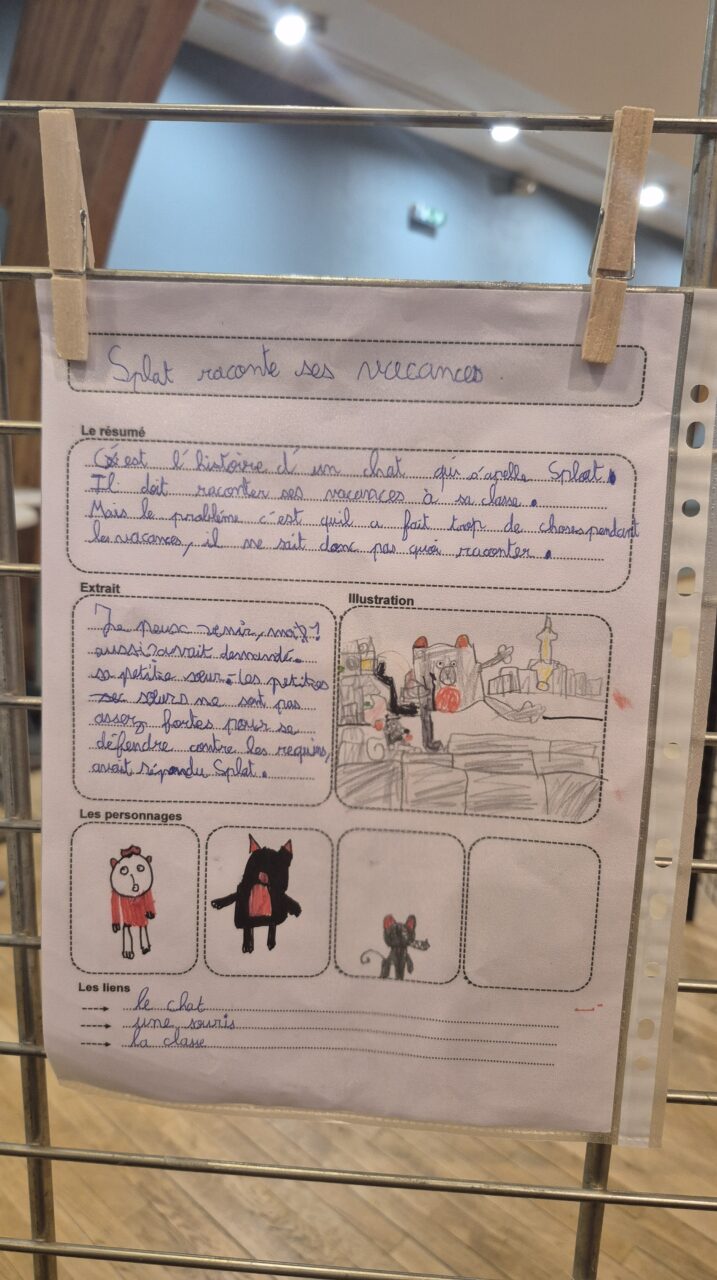 Splat raconte ses vacances
Le résumé
C'est l'histoire d'un chat qui s'apelle Splat.
Il doit raconter ses vacances à sa classe.
Mais le problème c'est qu'il a fait trop de choses pendant
les vacances, il ne sait donc pas quoi raconter.
Extrait
Je peux venir, moi
aussi? avait demandé
sa petite sœur. Les petites
sœurs ne sont pas
assez fortes pour se
défendre contre les requins,
avait répondu Splat.
Illustration
Les personnages
Les liens
le chat
une souris
la classe